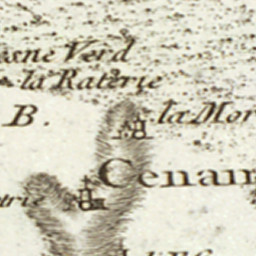 sne Verd
la Raterie
B.
la Mor
Cenam
trie